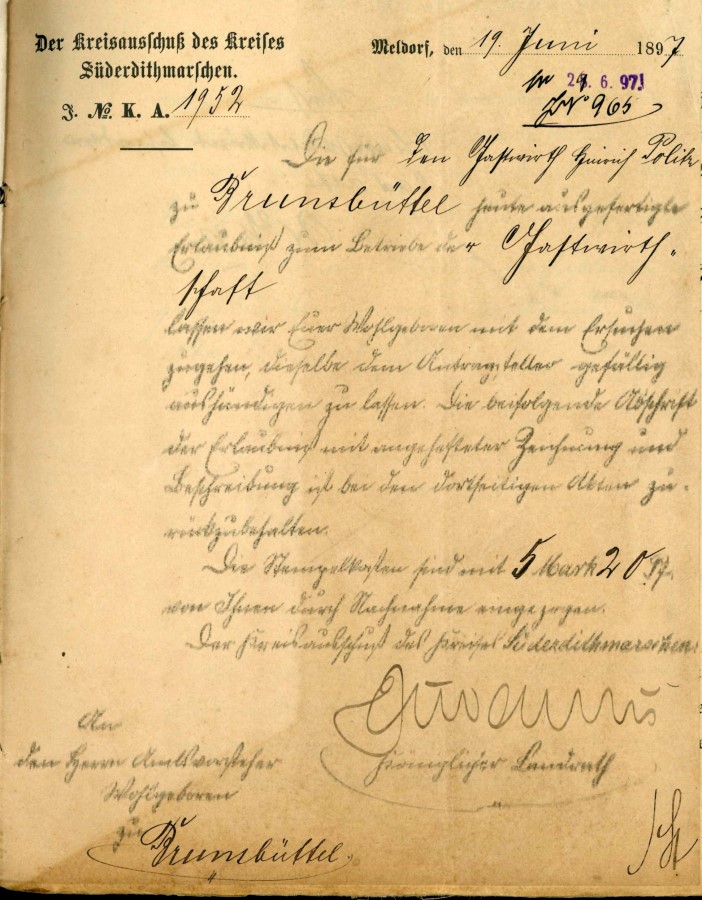 Der Kreisausschuß des Kreises
Süderdithmarschen.
J. № K. A. 1952
Meldorf, den 19. Juni 1897
28. 6. 97
J№ 965
Die für den Gastwirth Hinrich
zu Brunsbüttel heute ausgefertigte
Erlaubniß zum Betriebe der Gastwirth-
schaft
lassen wir Euer Wohlgeboren mit dem Ersuchen
zugehen, dieselbe dem Antragsteller gefällig
aushändigen zu lassen. Die beifolgende Abschrift
der Erlaubniß mit angehefteter Zeichnung und
Beschreibung ist bei den dortseitigen Akten zu-
rückzubehalten.
Die Stempelkosten sind mit 5 Mark 20 Pf.
von Ihnen durch Nachnahme eingezogen.
Der Kreisausschuß des Kreises Süderdithmarschen.
Königlicher Landrath
An
den Herrn Amtsvorsteher
Wohlgeboren
zu
Brunsbüttel.